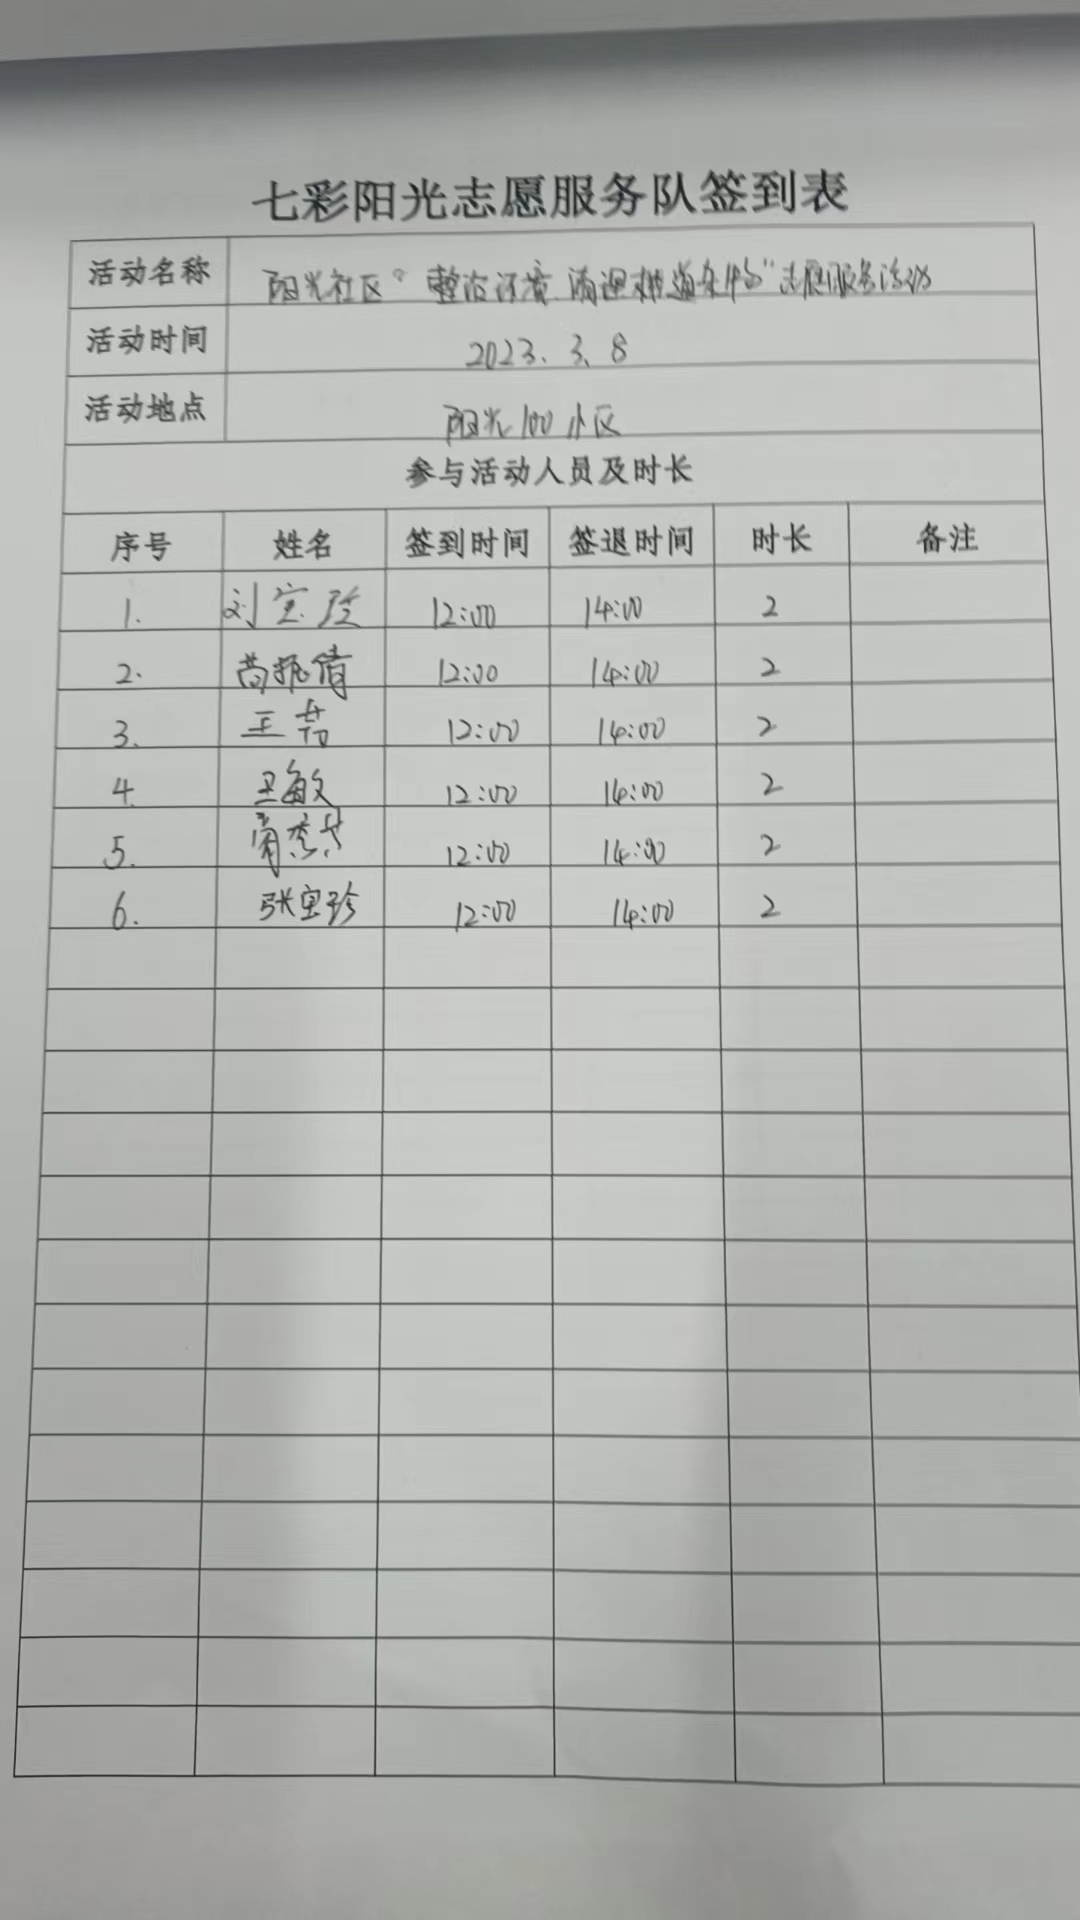 七彩阳光志愿服务队签到表
活动名称 阳光社区“整治环境 清理楼道杂物”志愿服务活动
活动时间 2023.3.8
活动地点 阳光100小区
参与活动人员及时长
序号 姓名 签到时间 签退时间 时长 备注
1. 刘宝 12:00 14:00 2
2. 12:00 14:00 2
3. 王 12:00 14:00 2
4. 王敏 12:00 14:00 2
5. 12:00 14:00 2
6. 张宝珍 12:00 14:00 2